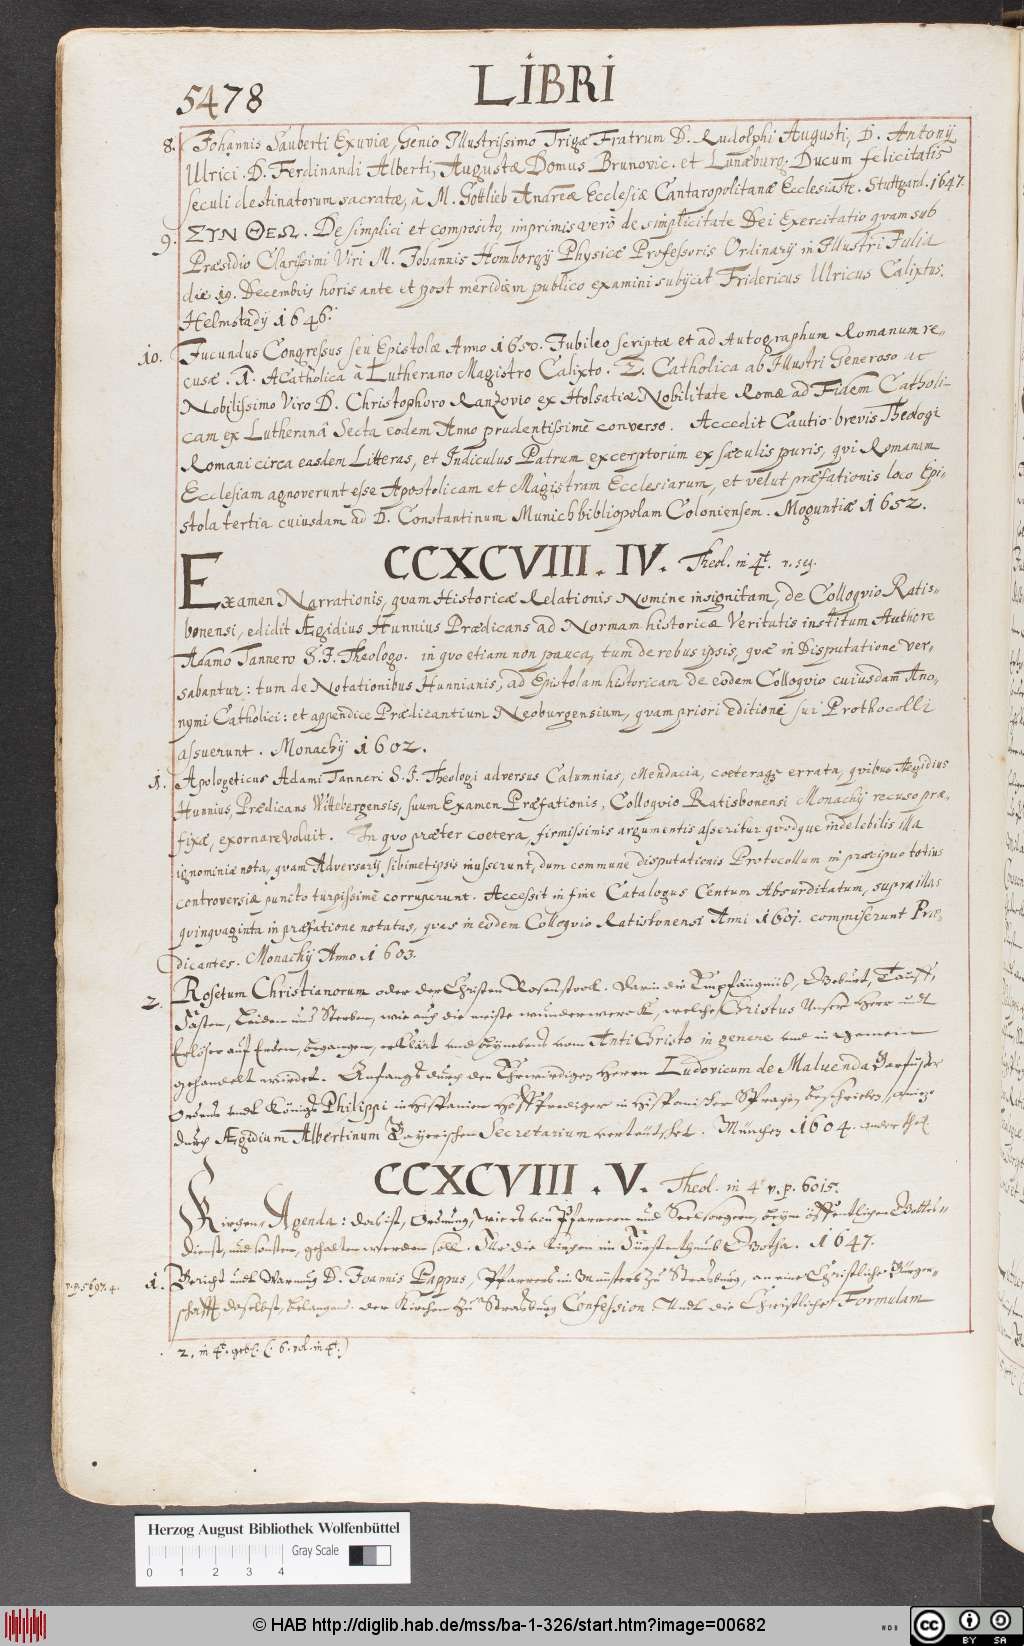 5478
LIBRI
8. Johannis Sauberti Exuviæ, Genio Illustrissimo Trigæ Fratrum D. Rudolphi Augusti, D. Antonij
Ulrici. D. Ferdinandi Alberti, Augustæ Domus Brunovic. et Lunæburg. Ducum felicitatis
seculi destinatorum sacratæ, à M. Gottlieb Andreæ Ecclesiæ Cantaropolitanæ Ecclesiaste. Stuttgard. 1647.
9. ΣΥΝ ΘΕΩ. De simplici et composito, imprimis verò de simplicitate Dei Exercitatio qvam sub
Præsidio Clarissimi Viri M. Johannis Homborgij Physicæ Professoris Ordinarij in Illustri Julia
die 19. Decembris horis ante et post meridiem publico examini subijcit Fridericus Ulricus Calixtus.
Helmstadij 1646.
10. Jucundus Congressus seu Epistolæ Anno 1650. Jubileo scriptæ et ad Autographum Romanum re-
cusæ. 1. ACatholica à Lutherano Magistro Calixto. 2. Catholica ab Illustri Generoso ac
Nobilissimo Viro D. Christophoro Ranzovio ex Holsatiæ Nobilitate Romæ ad Fidem Catholi-
cam ex Lutheranâ Secta eodem Anno prudentissimè converso. Accedit Cautio brevis Theologi
Romani circa easdem Litteras, et Indiculus Patrum excerptorum ex sæculis puris, qvi Romanam
Ecclesiam agnoverunt esse Apostolicam et Magistram Ecclesiarum, et velut præfationis loco Epi-
stola tertia cuiusdam ad D. Constantinum Munich bibliopolam Coloniensem. Moguntiæ 1652.
CCXCVIII. IV. Theol. in 4t.
Examen Narrationis, qvam Historicæ Relationis Nomine insignitam, de Colloqvio Ratis-
bonensi, edidit Ægidius Hunnius Prædicans ad Normam historicæ Veritatis institum Authore
Adamo Tannero S.J. Theologo. in qvo etiam non pauca, tum de rebus ipsis, qvæ in Disputatione ver-
sabantur: tum de Notationibus Hunnianis, ad Epistolam historicam de eodem Colloqvio cuiusdam Ano-
nymi Catholici: et appendice Prædicantium Neoburgensium, qvam priori editioni sui Prothocolli
assuerunt. Monachij 1602.
1. Apologeticus Adami Tanneri S.J. Theologi adversus Calumnias, Mendacia, coeteraqs errata, qvibus Aegidius
Hunnius, Prædicans Wittebergensis, suum Examen Præfationis, Colloqvio Ratisbonensi Monachij recuso præ-
fixæ, exornare voluit. In qvo præter coetera, firmissimis argumentis asseritur qvodque indelebilis illa
ignominiæ nota, qvam Adversarij sibimetipsis inusserunt, dum commune disputationis Protocollum in præcipuo totius
controversiæ puncto turpissimè corruperunt. Accessit in fine Catalogus Centum Absurditatum, supra illas
qvinqvaginta in præfatione notatas, qvas in eodem Colloqvio Ratisbonensi Anni 1601. compuserunt Præ-
dicantes. Monachij Anno 1603.
2. Rosetum Christianorum oder der Christen Rosenstock. Darin die Empfängnüß, Geburt, Tauff,
Fasten, Leiden und Sterben, wie auch die meiste wunderwerck, welche Christus Unser Herr und
Erlöser auf Erden, begangen, erklärt und beynebens vom AntiChristo in genere und in gemein
gehandelt würdet. Anfangs durch den Ehrwürdigen Herrn Ludovicum de Maluenda Barfüßer
Ordens und Königs Philippi in Hispanien Hoffprediger in Hispanischer Sprachen beschrieben
durch Ægidium Albertinum Bayerischen Secretarium verteütschet. München 1604.
CCXCVIII. V. Theol. in 4t v. p. 6015.
Kirchen Agenda: das ist, Ordnung, wie es von Pfarrern und Seelsorgern, beym öffentlichen Gottes-
dienst, und sonsten, gehalten werden soll. Für die Kirchen im Fürstenthumb Gotha. 1647.
v.p. 5697. 4. 1. Bericht und Warnung D. Joannis Pappus, Pfarrers im Münster zu Strasburg, an eine Christliche Bürger-
schafft daselbst, belangend der Kirchen zu Strasburg Confession Und die Christliche Formulam
Herzog August Bibliothek Wolfenbüttel
Gray Scale
0 1 2 3 4
© HAB http://diglib.hab.de/mss/ba-1-326/start.htm?image=00682
cc BY SA